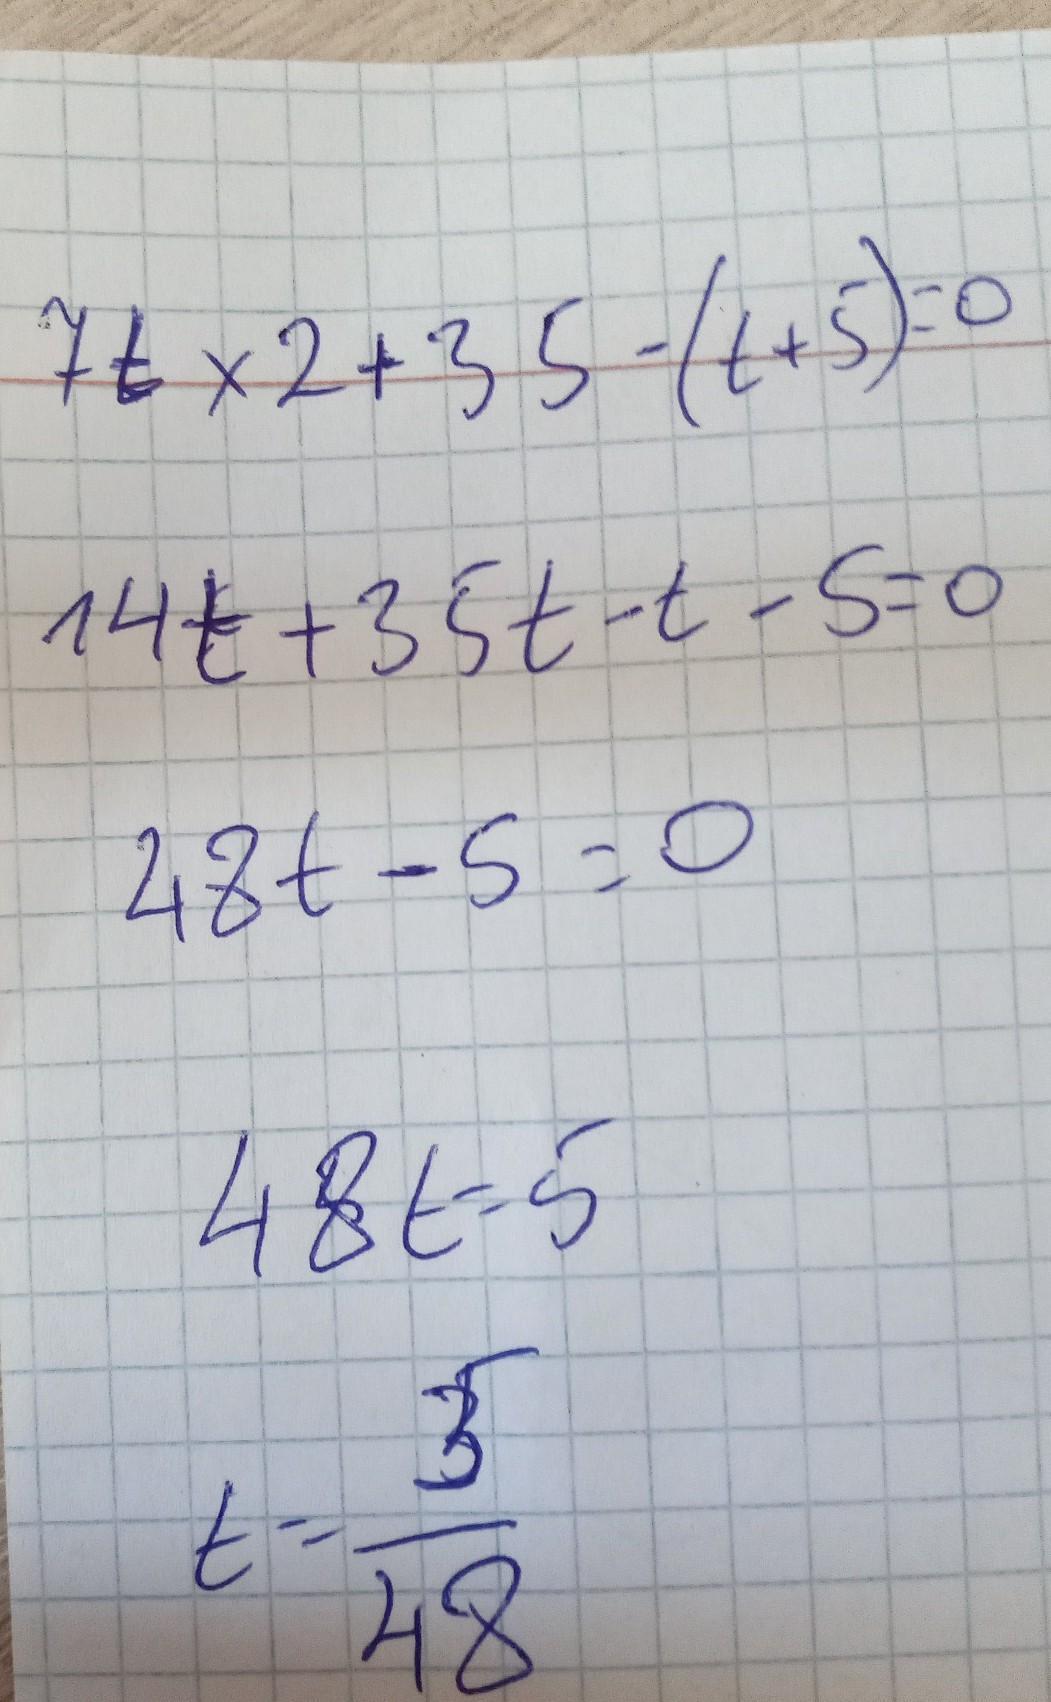 7t x 2 + 35 - (t + 5) = 0
14t + 35t - t - 5 = 0
48t - 5 = 0
48t = 5
t = 5/48